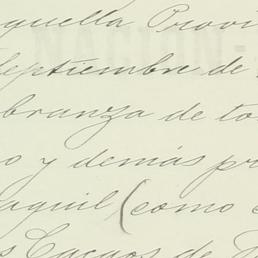 quella Provi
Septiembre de
branza de to
o y demás pr
aquil (como
s Cacaos de